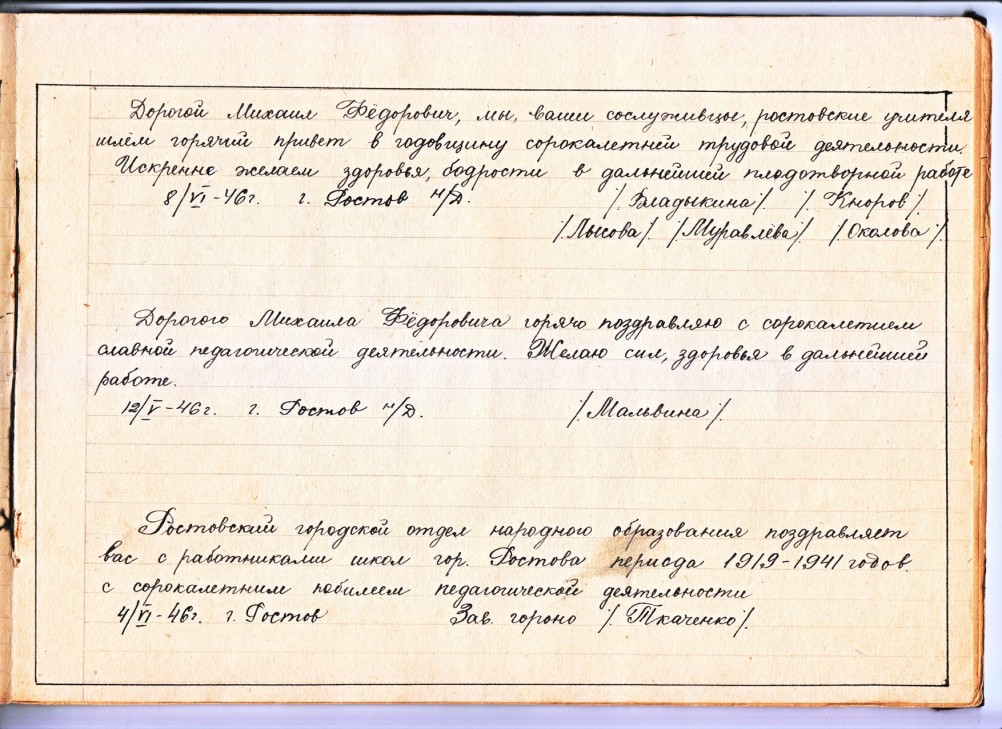 Дорогой Михаил Фёдорович, мы, ваши сослуживцы, ростовские учителя
шлём горячий привет в годовщину сорокалетней трудовой деятельности.
Искренне желаем здоровья, бодрости в дальнейшей плодотворной работе
8/VI-46г. г. Ростов н/Д. /Владыкина/. /. Кноров/.
/.Лысова/. /Муравлёва/. /.Околова/.
Дорогого Михаила Фёдоровича горячо поздравляю с сорокалетием
славной педагогической деятельности. Желаю сил, здоровья в дальнейшей
работе.
12/V-46г. г. Ростов н/Д. /.Мальвина/.
Ростовский городской отдел народного образования поздравляет
вас с работниками школ гор. Ростова периода 1919-1941 годов.
с сорокалетним юбилеем педагогической деятельности
4/VI-46г. г. Ростов Зав. гороно /. Ткаченко/.